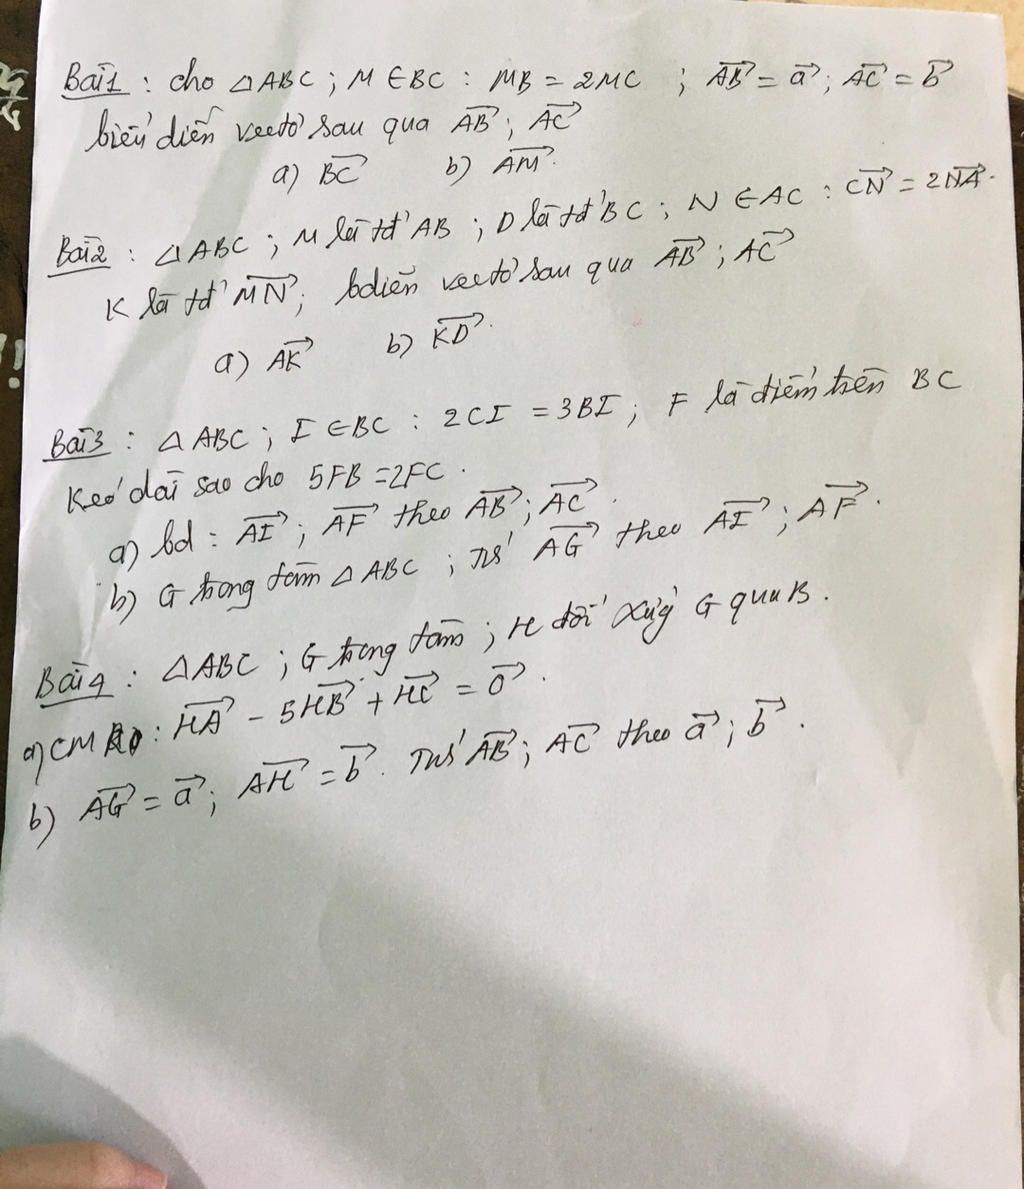 Bài 1 : cho △ABC ; M ∈ BC : MB = 2MC ; $\overrightarrow{AB}$ = $\vec{a}$ ; $\overrightarrow{AC}$ = $\vec{b}$
biểu diễn vectơ sau qua $\overrightarrow{AB}$ ; $\overrightarrow{AC}$
a) $\overrightarrow{BC}$ b) $\overrightarrow{AM}$.
Bài 2 : △ABC ; M là tđ' AB ; D là tđ' BC ; N ∈ AC : $\overrightarrow{CN}$ = 2$\overrightarrow{NA}$.
K là tđ' $\overrightarrow{MN}$ ; bdiễn vectơ sau qua $\overrightarrow{AB}$ ; $\overrightarrow{AC}$
a) $\overrightarrow{AK}$ b) $\overrightarrow{KD}$.
Bài 3 : △ABC ; I ∈ BC : 2CI = 3BI ; F là điểm trên BC
kéo dài sao cho 5FB = 2FC .
a) bd : $\overrightarrow{AI}$ ; $\overrightarrow{AF}$ theo $\overrightarrow{AB}$ ; $\overrightarrow{AC}$ .
b) G trọng tâm △ABC ; $\overrightarrow{AG}$ theo $\overrightarrow{AI}$ ; $\overrightarrow{AF}$ .
Bài 4 : △ABC ; G trọng tâm ; H đối xứng G qua B .
a) CM : $\overrightarrow{HA}$ - 5$\overrightarrow{HB}$ + $\overrightarrow{HC}$ = $\vec{0}$ .
b) $\overrightarrow{AG}$ = $\vec{a}$ ; $\overrightarrow{AH}$ = $\vec{b}$ . $\overrightarrow{AB}$ ; $\overrightarrow{AC}$ theo $\vec{a}$ ; $\vec{b}$ .